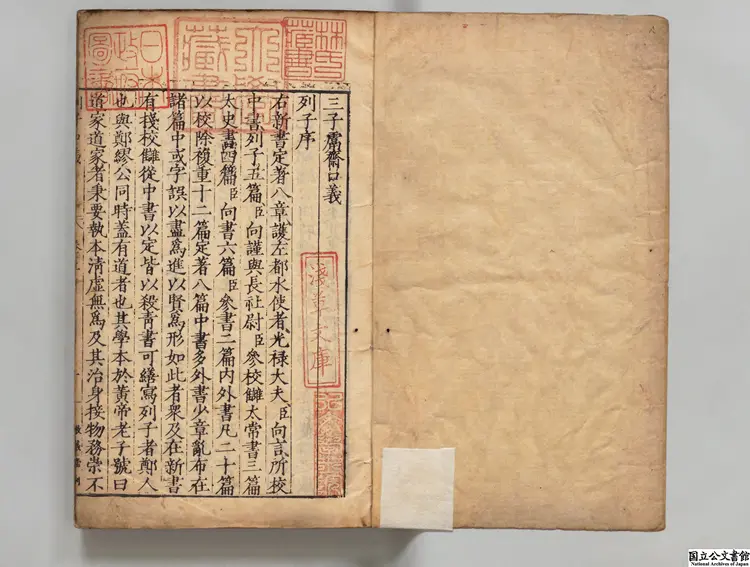 三子鬳齋口義
列子序
右新書定著八章護左都水使者光祿大夫臣向言所校
中書列子五篇臣向謹與長社尉臣參校讎太常書三篇
太史書四篇臣向書六篇臣參書二篇內外書凡二十篇
以校除複重十二篇定著八篇中書多外書少章亂布在
諸篇中或字誤以盡爲進以賢爲形如此者衆及在新書
有棧校讎從中書以定皆以殺青書可繕寫列子者鄭人
也與鄭繆公同時蓋有道者也其學本於黃帝老子號曰
道家道家者秉要執本清虛無爲及其治身接物務崇不
林氏藏書
日本政府圖書
淺草文庫
国立公文書館
National Archives of Japan